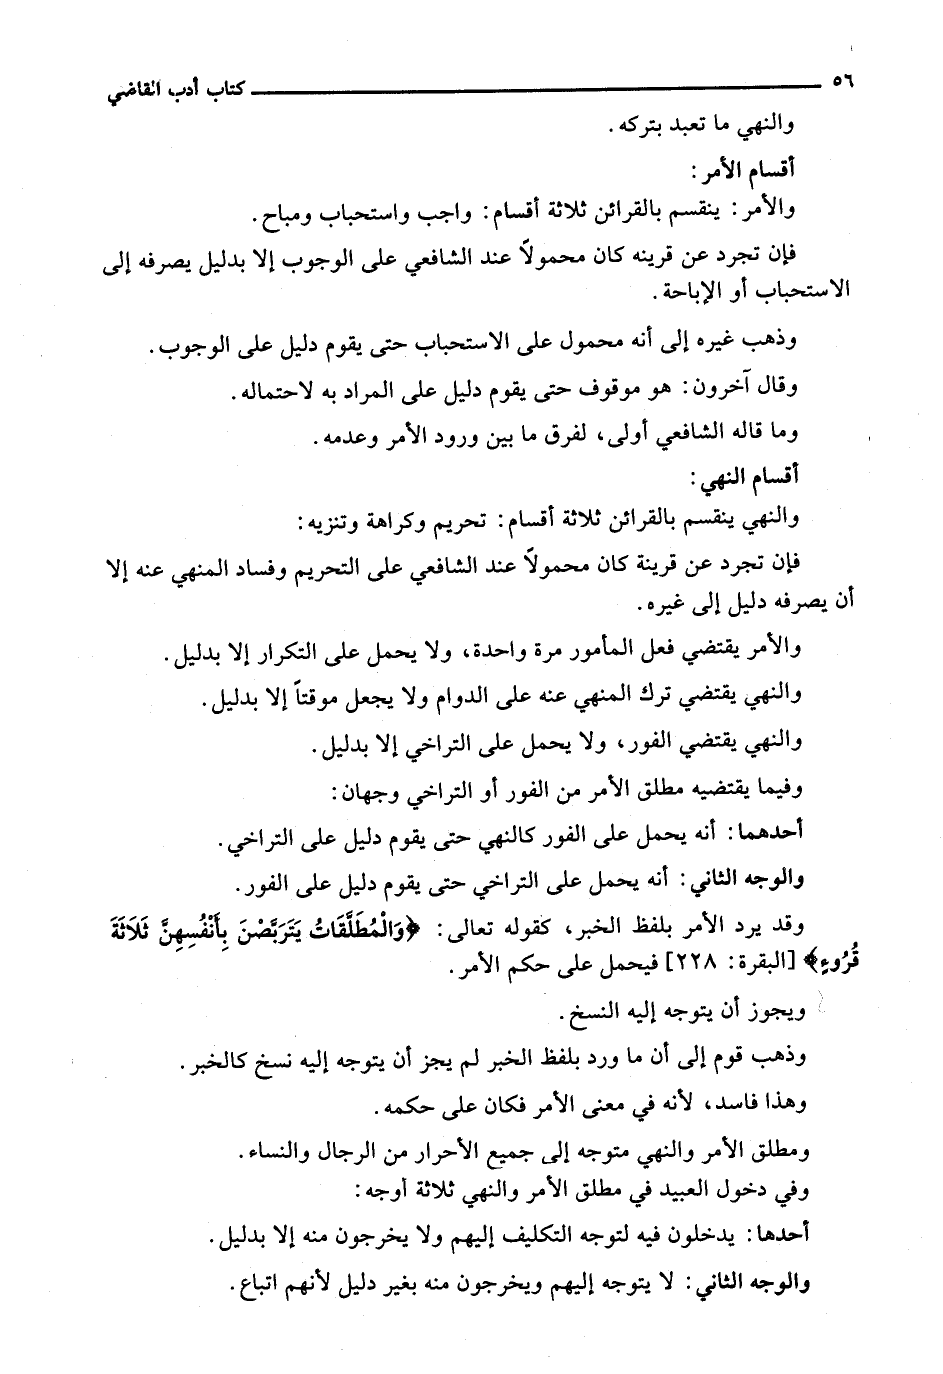 ٥٦ كتاب أدب القاضي
والنهي ما تعبد بتركه.
أقسام الأمر:
والأمر: ينقسم بالقرائن ثلاثة أقسام: واجب واستحباب ومباح.
فإن تجرد عن قرينه كان محمولاً عند الشافعي على الوجوب إلا بدليل يصرفه إلى
الاستحباب أو الإباحة.
وذهب غيره إلى أنه محمول على الاستحباب حتى يقوم دليل على الوجوب.
وقال آخرون: هو موقوف حتى يقوم دليل على المراد به لاحتماله.
وما قاله الشافعي أولى، لفرق ما بين ورود الأمر وعدمه.
أقسام النهي:
والنهي ينقسم بالقرائن ثلاثة أقسام: تحريم وكراهة وتنزيه:
فإن تجرد عن قرينة كان محمولاً عند الشافعي على التحريم وفساد المنهي عنه إلا
أن يصرفه دليل إلى غيره.
والأمر يقتضي فعل المأمور مرة واحدة، ولا يحمل على التكرار إلا بدليل.
والنهي يقتضي ترك المنهي عنه على الدوام ولا يجعل موقتاً إلا بدليل.
والنهي يقتضي الفور، ولا يحمل على التراخي إلا بدليل.
وفيما يقتضيه مطلق الأمر من الفور أو التراخي وجهان:
أحدهما: أنه يحمل على الفور كالنهي حتى يقوم دليل على التراخي.
والوجه الثاني: أنه يحمل على التراخي حتى يقوم دليل على الفور.
وقد يرد الأمر بلفظ الخبر، كقوله تعالى: ﴿وَالْمُطَلَّقَاتُ يَتَرَبَّصْنَ بِأَنْفُسِهِنَّ ثَلَاثَةَ
قُرُوءٍ﴾ [البقرة: ٢٢٨] فيحمل على حكم الأمر.
ويجوز أن يتوجه إليه النسخ.
وذهب قوم إلى أن ما ورد بلفظ الخبر لم يجز أن يتوجه إليه نسخ كالخبر.
وهذا فاسد، لأنه في معنى الأمر فكان على حكمه.
ومطلق الأمر والنهي متوجه إلى جميع الأحرار من الرجال والنساء.
وفي دخول العبيد في مطلق الأمر والنهي ثلاثة أوجه:
أحدها: يدخلون فيه لتوجه التكليف إليهم ولا يخرجون منه إلا بدليل.
والوجه الثاني: لا يتوجه إليهم ويخرجون منه بغير دليل لأنهم اتباع.